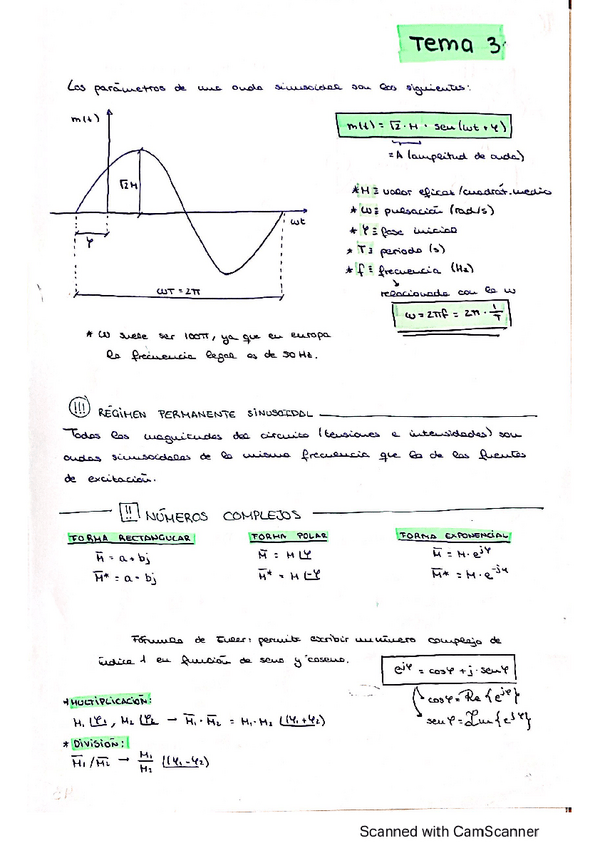 Tema 3
Los parámetros de una onda sinusoidal son los siguientes:
m(t)
√2M
ωt
φ
ωT = 2π
m(t) = √2 · M · sen(ωt + φ)
= A (amplitud de onda)
* M ≡ valor eficaz/cuadrát. medio
* ω ≡ pulsación (rad/s)
* φ ≡ fase inicial
* T ≡ periodo (s)
* f ≡ frecuencia (Hz)
relacionada con la ω
ω = 2πf = 2π · 1/T
* ω suele ser 100π, ya que en europa
la frecuencia legal es de 50 Hz.
!!! RÉGIMEN PERMANENTE SINUSOIDAL
Todas las magnitudes del circuito (tensiones e intensidades) son
ondas sinusoidales de la misma frecuencia que la de las fuentes
de excitación.
!! NÚMEROS COMPLEJOS
FORMA RECTANGULAR FORMA POLAR FORMA EXPONENCIAL
M̅ = a + bj M̅ = M∠φ M̅ = M · e^jφ
M̅* = a - bj M̅* = M∠-φ M̅* = M · e^-jφ
Fórmula de Euler: permite escribir un número complejo de
índice 1 en función de seno y coseno.
e^jφ = cosφ + j · senφ
cosφ = Re {e^jφ}
senφ = Im {e^jφ}
* MULTIPLICACIÓN:
M₁∠φ₁, M₂∠φ₂ → M̅₁ · M̅₂ = M₁ · M₂ ∠(φ₁+φ₂)
* DIVISIÓN:
M̅₁/M̅₂ → M₁/M₂ ∠(φ₁-φ₂)
Scanned with CamScanner